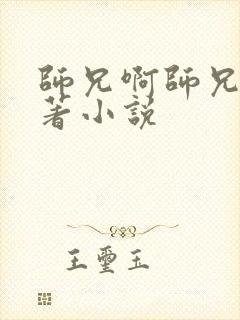 師兄啊師兄
著小說
王璽玉